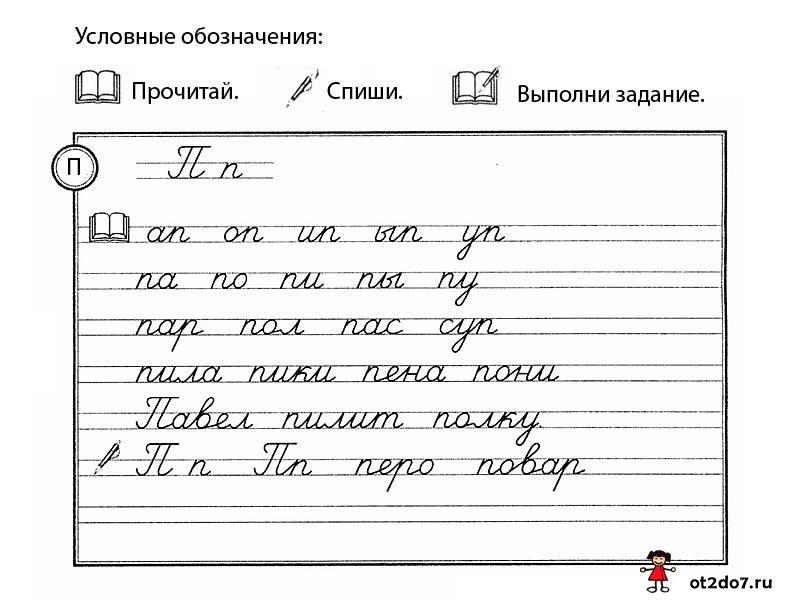 Условные обозначения:
Прочитай. Спиши. Выполни задание.
П
П п
ап оп ип ып уп
па по пи пы пу
пар пол пас суп
пила пики пена пони
Павел пилит полку.
П п Пп перо повар
ot2do7.ru